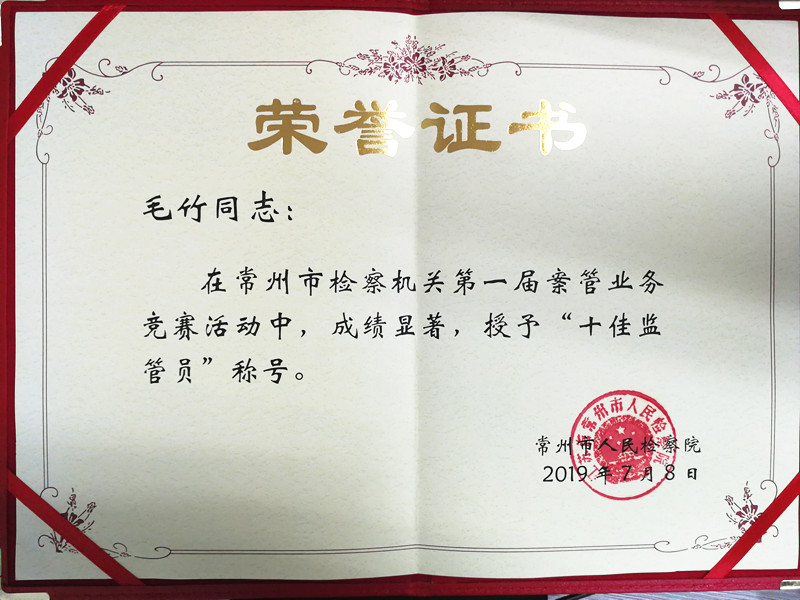 荣誉证书
毛竹同志：
在常州市检察机关第一届案管业务
竞赛活动中，成绩显著，授予“十佳监
管员”称号。
江苏省常州市人民检察院
常州市人民检察院
2019年7月8日